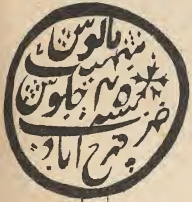 مانوس
میمنت
سنه ۴۵ جلوس
ضرب
فرخ آباد